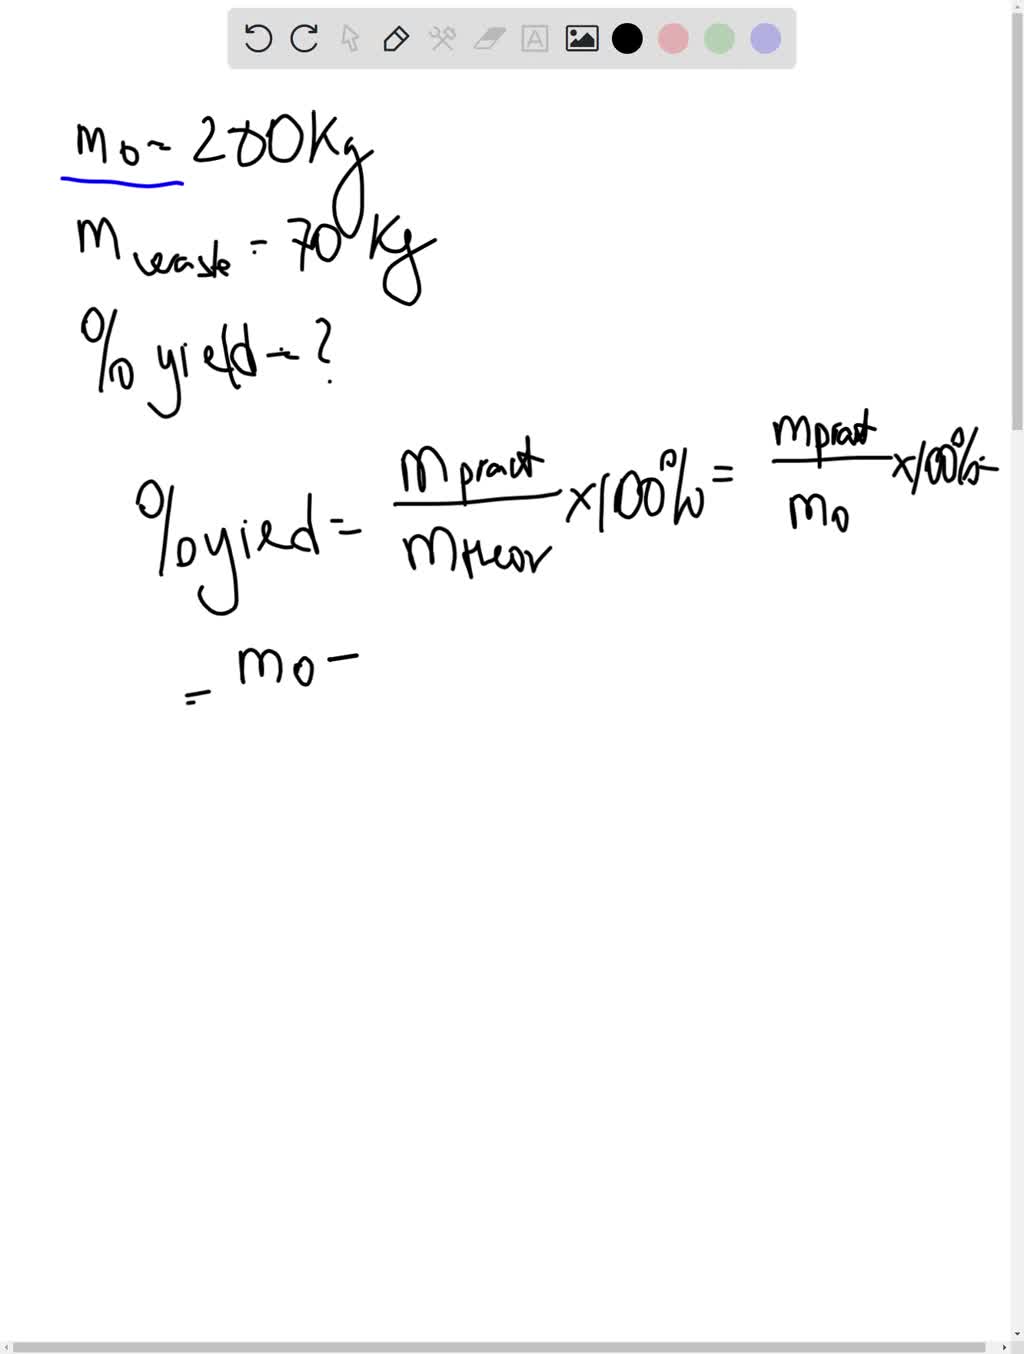 m₀ = 200Kg
m waste = 70 Kg
% yield = ?
% yied = m pract / m theor x100% = m pract / m₀ x100% =
= m₀ -